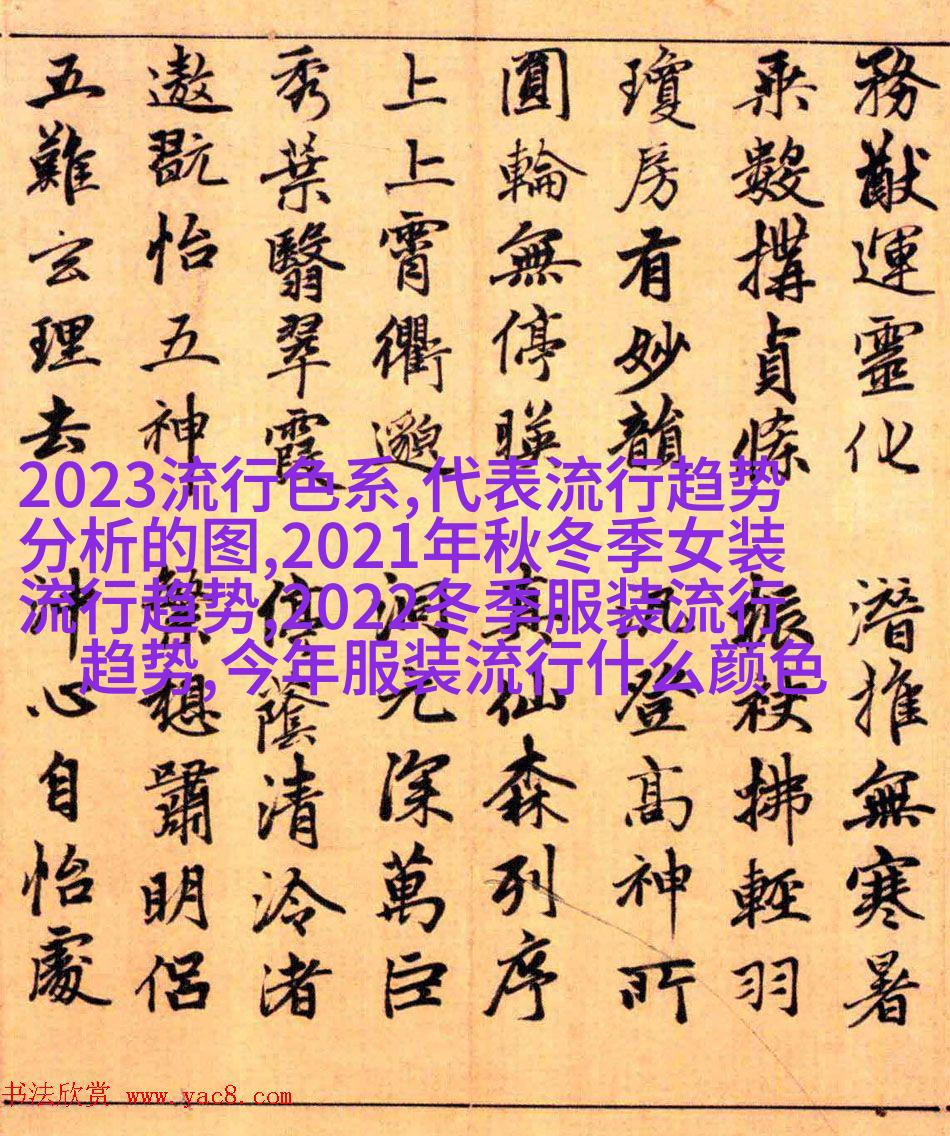 務猷運靈化 潛推無寒暑
乘數搆貞條 振袂拂輕羽
瓊房有妙韻 登高神所
圓輪無停映 真仙森列序
上上霄衢邈 洞元深萬巨
秀葉翳翠霞 停蔭清泠渚
遨翫怡五神 想嘯明侶
五難玄理去 沖心自怡處
2023流行色系,代表流行趋势
分析的图,2021年秋冬季女装
流行趋势,2022冬季服装流行
趋势,今年服装流行什么颜色
书法欣赏 www.yac8.com